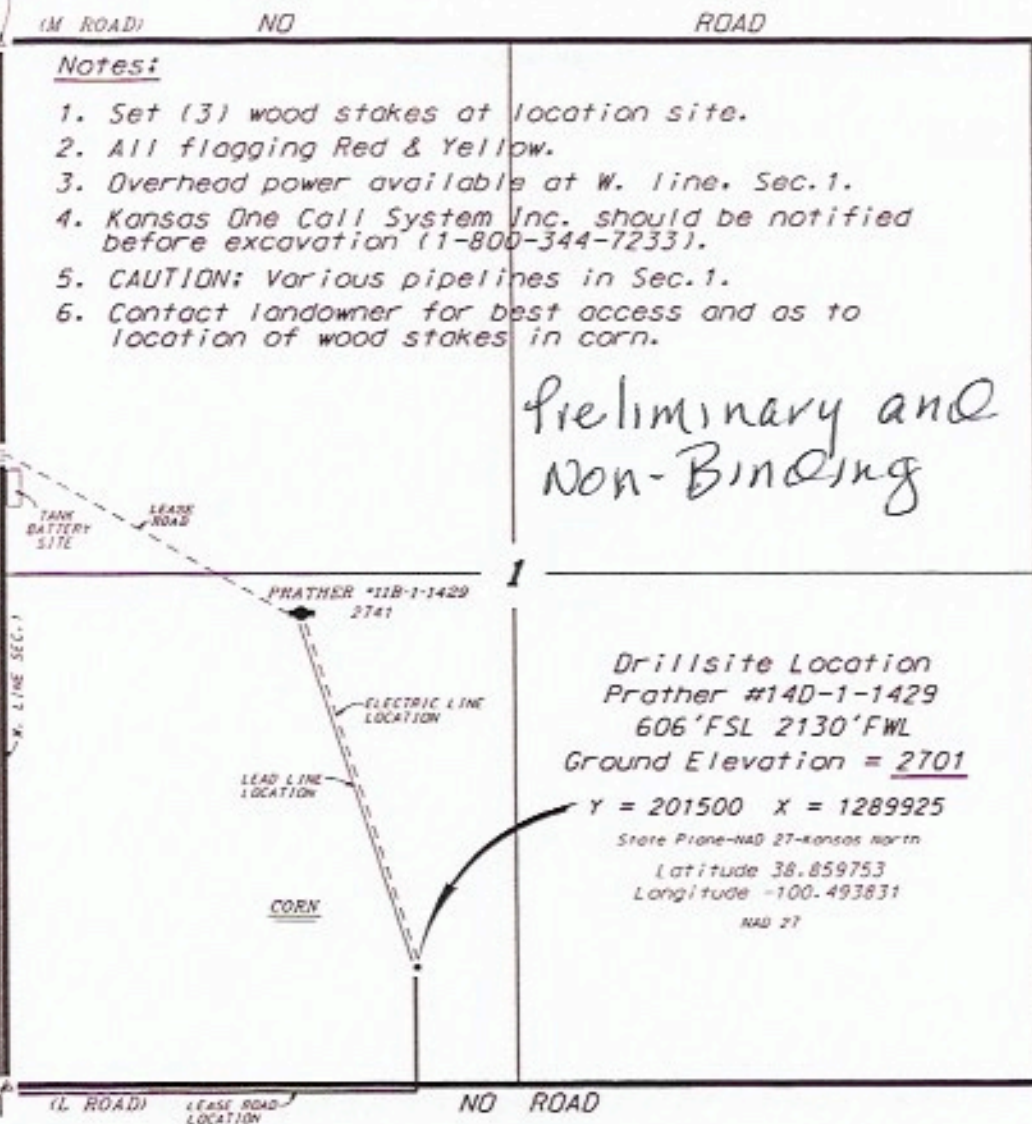 (M ROAD) NO ROAD
Notes:
1. Set (3) wood stakes at location site.
2. All flagging Red & Yellow.
3. Overhead power available at W. line. Sec.1.
4. Kansas One Call System Inc. should be notified
before excavation (1-800-344-7233).
5. CAUTION: Various pipelines in Sec.1.
6. Contact landowner for best access and as to
location of wood stakes in corn.
Preliminary and
Non-Binding
TANK
BATTERY
SITE
LEASE
ROAD
1
PRATHER #11B-1-1429
2741
W. LINE SEC.1
ELECTRIC LINE
LOCATION
LEAD LINE
LOCATION
CORN
Drillsite Location
Prather #14D-1-1429
606'FSL 2130'FWL
Ground Elevation = 2701
Y = 201500 X = 1289925
State Plane-NAD 27-Kansas North
Latitude 38.859753
Longitude -100.493831
NAD 27
(L ROAD) NO ROAD
LEASE ROAD
LOCATION